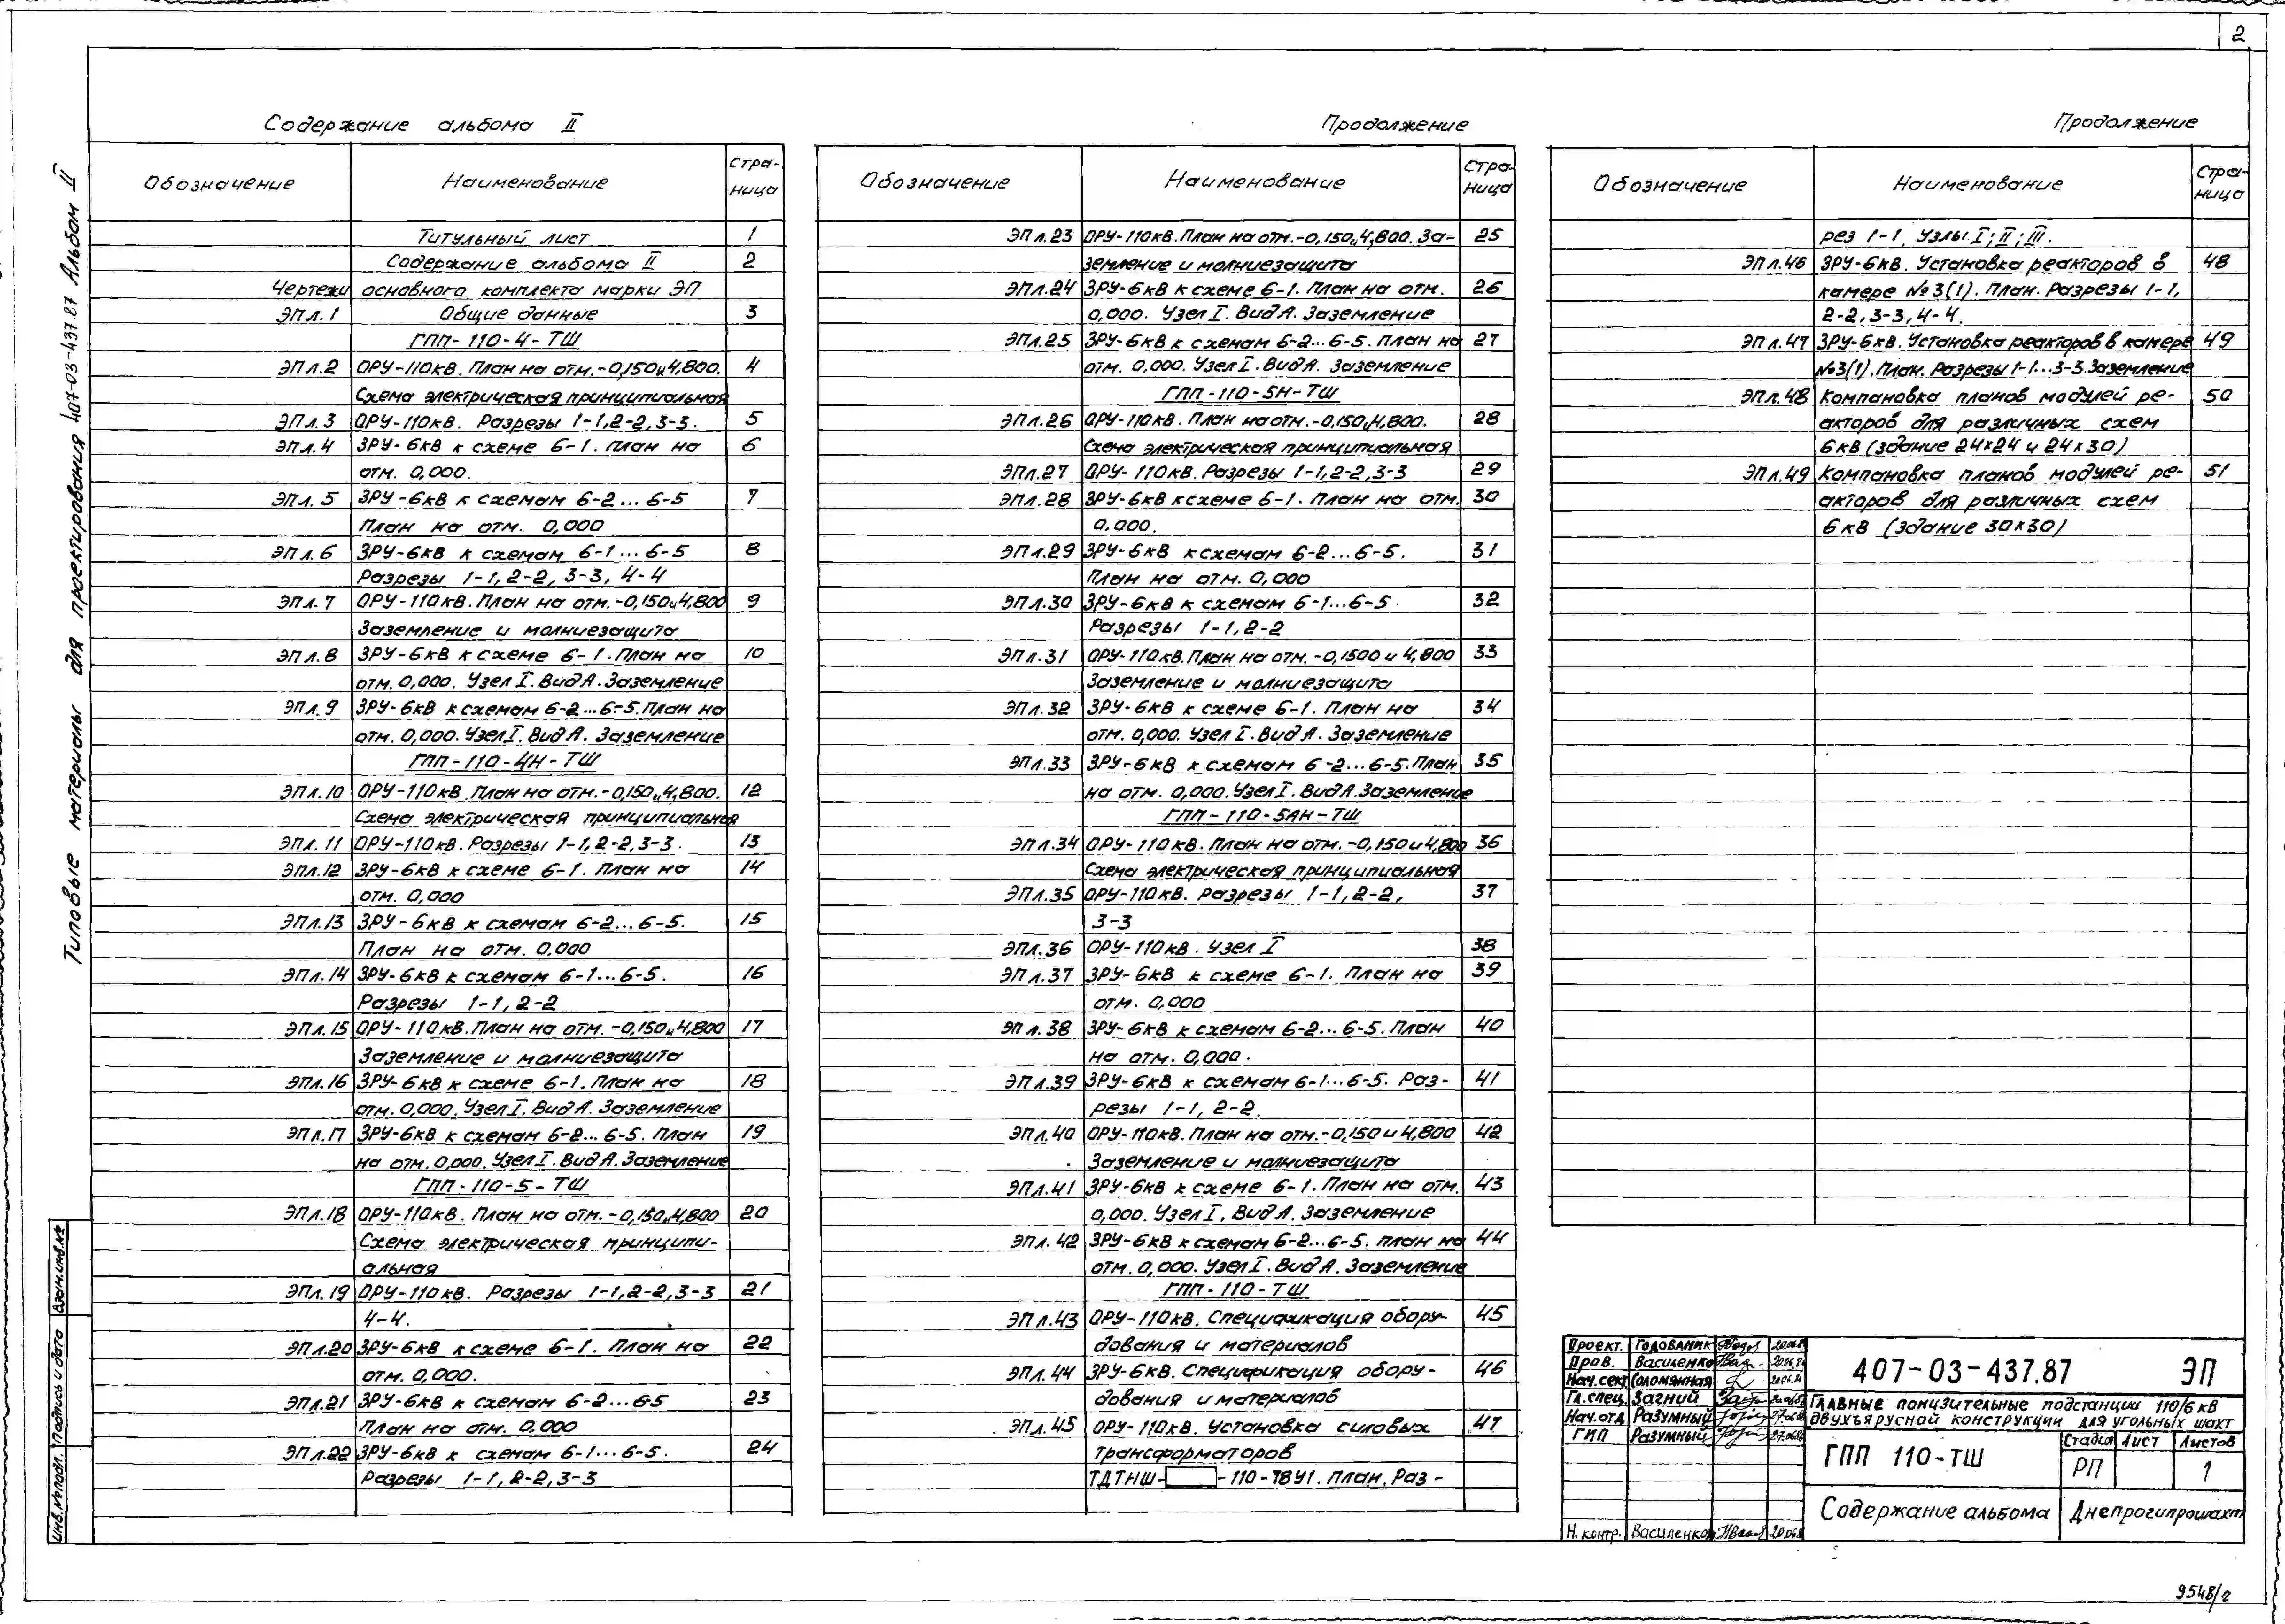 2
Типовые материалы для проектирования 407-03-437.87 Альбом II
Содержание альбома II
Обозначение Наименование Стра-
ница
Титульный лист 1
Содержание альбома II 2
Чертежи основного комплекта марки ЭП
ЭП л. 1 Общие данные 3
ГПП-110-4-ТШ
ЭП л.2 ОРУ-110кВ. План на отм.-0,150и4,800. 4
Схема электрическая принципиальная
ЭП л. 3 ОРУ-110кВ. Разрезы 1-1,2-2,3-3. 5
ЭП л. 4 ЗРУ-6кВ к схеме 6-1. План на 6
отм. 0,000.
ЭП л. 5 ЗРУ-6кВ к схемам 6-2...6-5 7
План на отм. 0,000
ЭП л. 6 ЗРУ-6кВ к схемам 6-1...6-5 8
Разрезы 1-1, 2-2, 3-3, 4-4
ЭП л. 7 ОРУ-110кВ. План на отм. -0,150и4,800 9
Заземление и молниезащита
ЭП л. 8 ЗРУ-6кВ к схеме 6-1. План на 10
отм. 0,000. Узел I. Вид А. Заземление
ЭП л. 9 ЗРУ-6кВ к схемам 6-2...6-5. План на 11
отм. 0,000. Узел I. Вид А. Заземление
ГПП-110-4Н-ТШ
ЭП л. 10 ОРУ-110кВ. План на отм.-0,150и4,800. 12
Схема электрическая принципиальная
ЭП л. 11 ОРУ-110кВ. Разрезы 1-1, 2-2, 3-3. 13
ЭП л. 12 ЗРУ-6кВ к схеме 6-1. План на 14
отм. 0,000
ЭП л.13 ЗРУ-6кВ к схемам 6-2...6-5. 15
План на отм. 0,000
ЭП л. 14 ЗРУ-6кВ к схемам 6-1...6-5. 16
Разрезы 1-1, 2-2
ЭП л. 15 ОРУ-110кВ. План на отм. -0,150и4,800 17
Заземление и молниезащита
ЭП л. 16 ЗРУ-6кВ к схеме 6-1. План на 18
отм. 0,000. Узел I. Вид А. Заземление
ЭП л. 17 ЗРУ-6кВ к схемам 6-2...6-5. План 19
на отм. 0,000. Узел I. Вид А. Заземление
ГПП-110-5-ТШ
ЭП л.18 ОРУ-110кВ. План на отм. -0,150и4,800 20
Схема электрическая принципи-
альная
ЭП л. 19 ОРУ-110кВ. Разрезы 1-1, 2-2, 3-3 21
4-4.
ЭП л.20 ЗРУ-6кВ к схеме 6-1. План на 22
отм. 0,000.
ЭП л.21 ЗРУ-6кВ к схемам 6-2...6-5 23
План на отм. 0,000
ЭП л.22 ЗРУ-6кВ к схемам 6-1...6-5. 24
Разрезы 1-1, 2-2, 3-3
Продолжение
Обозначение Наименование Стра-
ница
ЭП л.23 ОРУ-110кВ. План на отм.-0,150и4,800. За- 25
земление и молниезащита
ЭП л.24 ЗРУ-6кВ к схеме 6-1. План на отм. 26
0,000. Узел I. Вид А. Заземление
ЭП л.25 ЗРУ-6кВ к схемам 6-2...6-5. План на 27
отм. 0,000. Узел I. Вид А. Заземление
ГПП-110-5Н-ТШ
ЭП л.26 ОРУ-110кВ. План на отм.-0,150и4,800. 28
Схема электрическая принципиальная
ЭП л.27 ОРУ-110кВ. Разрезы 1-1, 2-2, 3-3 29
ЭП л.28 ЗРУ-6кВ к схеме 6-1. План на отм. 30
0,000.
ЭП л.29 ЗРУ-6кВ к схемам 6-2...6-5. 31
План на отм. 0,000
ЭП л.30 ЗРУ-6кВ к схемам 6-1...6-5. 32
Разрезы 1-1, 2-2
ЭП л.31 ОРУ-110кВ. План на отм. -0,1500 и 4,800 33
Заземление и молниезащита
ЭП л.32 ЗРУ-6кВ к схеме 6-1. План на 34
отм. 0,000. Узел I. Вид А. Заземление
ЭП л.33 ЗРУ-6кВ к схемам 6-2...6-5. План 35
на отм. 0,000. Узел I. Вид А. Заземление
ГПП-110-5АН-ТШ
ЭП л.34 ОРУ-110кВ. План на отм. -0,150 и 4,800 36
Схема электрическая принципиальная
ЭП л.35 ОРУ-110кВ. Разрезы 1-1, 2-2, 37
3-3
ЭП л.36 ОРУ-110кВ. Узел I 38
ЭП л.37 ЗРУ-6кВ к схеме 6-1. План на 39
отм. 0,000
ЭП л.38 ЗРУ-6кВ к схемам 6-2...6-5. План 40
на отм. 0,000.
ЭП л.39 ЗРУ-6кВ к схемам 6-1...6-5. Раз- 41
резы 1-1, 2-2.
ЭП л.40 ОРУ-110кВ. План на отм.-0,150 и 4,800 42
Заземление и молниезащита
ЭП л.41 ЗРУ-6кВ к схеме 6-1. План на отм. 43
0,000. Узел I. Вид А. Заземление
ЭП л. 42 ЗРУ-6кВ к схемам 6-2...6-5. План на 44
отм. 0,000. Узел I. Вид А. Заземление
ГПП-110-ТШ
ЭП л.43 ОРУ-110кВ. Спецификация обору- 45
дования и материалов
ЭП л. 44 ЗРУ-6кВ. Спецификация обору- 46
дования и материалов
ЭП л.45 ОРУ-110кВ. Установка силовых 47
трансформаторов
ТДТНШ- -110-78У1. План. Раз-
Продолжение
Обозначение Наименование Стра-
ница
рез 1-1. Узлы I; II; III.
ЭП л.46 ЗРУ-6кВ. Установка реакторов в 48
камере №3(1). План. Разрезы 1-1,
2-2, 3-3, 4-4.
ЭП л.47 ЗРУ-6кВ. Установка реакторов в камере 49
№3(1). План. Разрезы 1-1...3-3. Заземление
ЭП л.48 Компановка планов модулей ре- 50
акторов для различных схем
6кВ (здание 24х24 и 24х30)
ЭП л.49 Компановка планов модулей ре- 51
акторов для различных схем
6кВ (здание 30х30)
Инв.№подл. Подпись и дата Взам.инв.№
Проект. Годованик 20.06.8
Пров. Василенко 20.06.8
Нач.сект. Соломянная 20.06.8
Гл.спец. Загний
Нач.отд Разумный 27.06.8
ГИП Разумный 27.06.8
Н.контр. Василенко 20.06.8
407-03-437.87 ЭП
Главные понизительные подстанции 110/6кВ
двухъярусной конструкции для угольных шахт
ГПП 110-ТШ
Стадия Лист Листов
РП 1
Содержание альбома
Днепрогипрошахт
9548/2